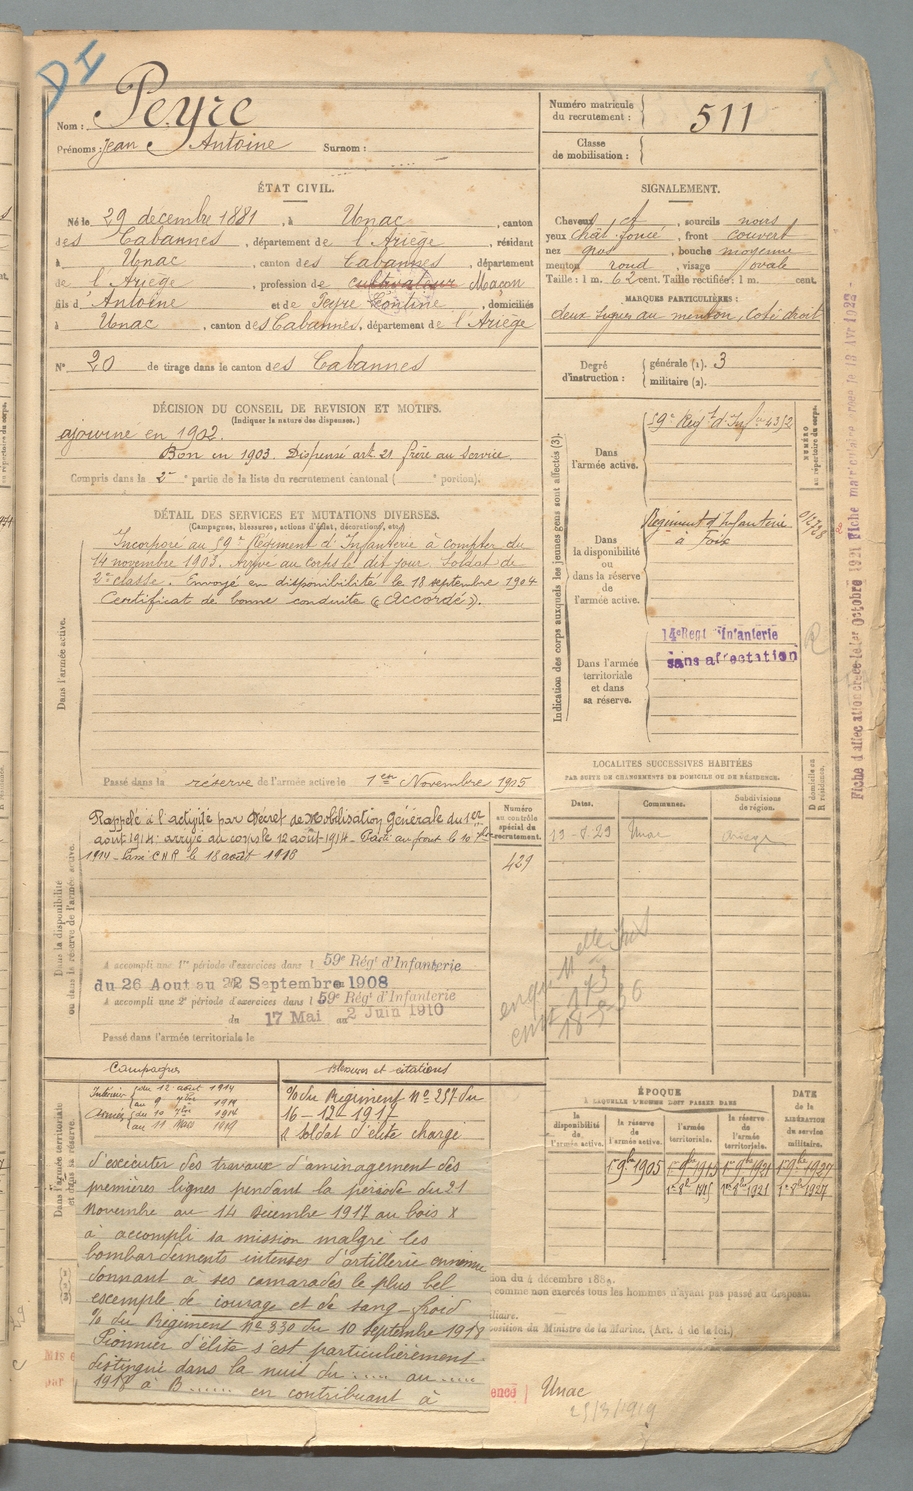 DI
Nom : Peyre
Prénoms : Jean Antoine Surnom :
Numéro matricule du recrutement : 511
Classe de mobilisation :
ÉTAT CIVIL.
Né le 29 décembre 1881, à Unac, canton
des Cabannes, département de l'Ariège, résidant
à Unac, canton des Cabannes, département
de l'Ariège, profession de cultivateur Maçon
fils d'Antoine et de Peyre Léontine, domiciliés
à Unac, canton des Cabannes, département de l'Ariège
N° 20 de tirage dans le canton des Cabannes
SIGNALEMENT.
Cheveux ct, sourcils noirs
yeux chât foncé, front couvert
nez gros, bouche moyenne
menton rond, visage ovale
Taille : 1 m. 62 cent. Taille rectifiée : 1 m. cent.
MARQUES PARTICULIÈRES :
deux signes au menton, coté droit
Degré d'instruction : générale (1). 3
militaire (2).
DÉCISION DU CONSEIL DE REVISION ET MOTIFS.
(Indiquer la nature des dispenses.)
ajourné en 1902.
Bon en 1903. Dispensé art. 21 frère au service.
Compris dans la 2e partie de la liste du recrutement cantonal ( portion).
DÉTAIL DES SERVICES ET MUTATIONS DIVERSES.
(Campagnes, blessures, actions d'éclat, décorations, etc.)
Dans l'armée active.
Incorporé au 59e Régiment d'Infanterie à compter du
14 novembre 1903. Arrivé au corps le dit jour. Soldat de
2e classe. Envoyé en disponibilité le 18 septembre 1904
Certificat de bonne conduite "Accordé".
Passé dans la réserve de l'armée active le 1er Novembre 1905
Indication des corps auxquels les jeunes gens sont affectés (3).
NUMÉRO au répertoire du corps.
Dans l'armée active.
59e Régt d'Infie 4352
Dans la disponibilité ou dans la réserve de l'armée active.
Régiment d'Infanterie
à Foix
Dans l'armée territoriale et dans sa réserve.
14e Regt d'Infanterie
sans affectation
R
Fiche d'affectation créée le 1er Octobre 1921
LOCALITÉS SUCCESSIVES HABITÉES
PAR SUITE DE CHANGEMENTS DE DOMICILE OU DE RÉSIDENCE.
Dates. Communes. Subdivisions de région. D domicile ou R résidence.
Unac Ariège
Dans la disponibilité ou dans la réserve de l'armée active.
Rappelé à l'activité par Décret de Mobilisation Générale du 1er
août 1914 : arrivé au corps le 12 août 1914 - Parti au front le 10 7bre
1914 - Passé C.N.R. le 18 août 1916
Numéro au contrôle spécial du recrutement.
429
A accompli une 1re période d'exercices dans l 59e Régt d'Infanterie
du 26 Aout au 22 Septembre 1908
A accompli une 2e période d'exercices dans l 59e Régt d'Infanterie
du 17 Mai au 2 Juin 1910
Passé dans l'armée territoriale le
Dans l'armée territoriale et dans sa réserve.
Campagnes
Intérieur du 12 août 1914
au 9 7bre 1914
Armées du 10 7bre 1914
au 11 Mars 1919
Blessures et citations
% du Régiment N° 257 du
16-12-1917
Soldat d'élite chargé
d'exécuter des travaux d'aménagement des
premières lignes pendant la période du 21
Novembre au 14 Décembre 1917 au bois X
a accompli sa mission malgré les
bombardements intenses d'artillerie ennemie
donnant à ses camarades le plus bel
exemple de courage et de sang-froid
% du Régiment N° 330 du 10 Septembre 1918
Pionnier d'élite s'est particulièrement
distingué dans la nuit du ..... au .....
1918 à B...... en contribuant à
ÉPOQUE
À LAQUELLE L'HOMME DOIT PASSER DANS
la disponibilité de l'armée active. la réserve de l'armée active. l'armée territoriale. la réserve de l'armée territoriale.
DATE de la LIBÉRATION du service militaire.
1er 9bre 1905 1er 9bre 1915 1er 9bre 1921 1er 9bre 1927
1er 8bre 1915 1er 8bre 1921 1er 8bre 1927
comme non exercés tous les hommes n'ayant pas passé au drapeau.
position du Ministre de la Marine. (Art. 4 de la loi.)
Unac
25/3/1919